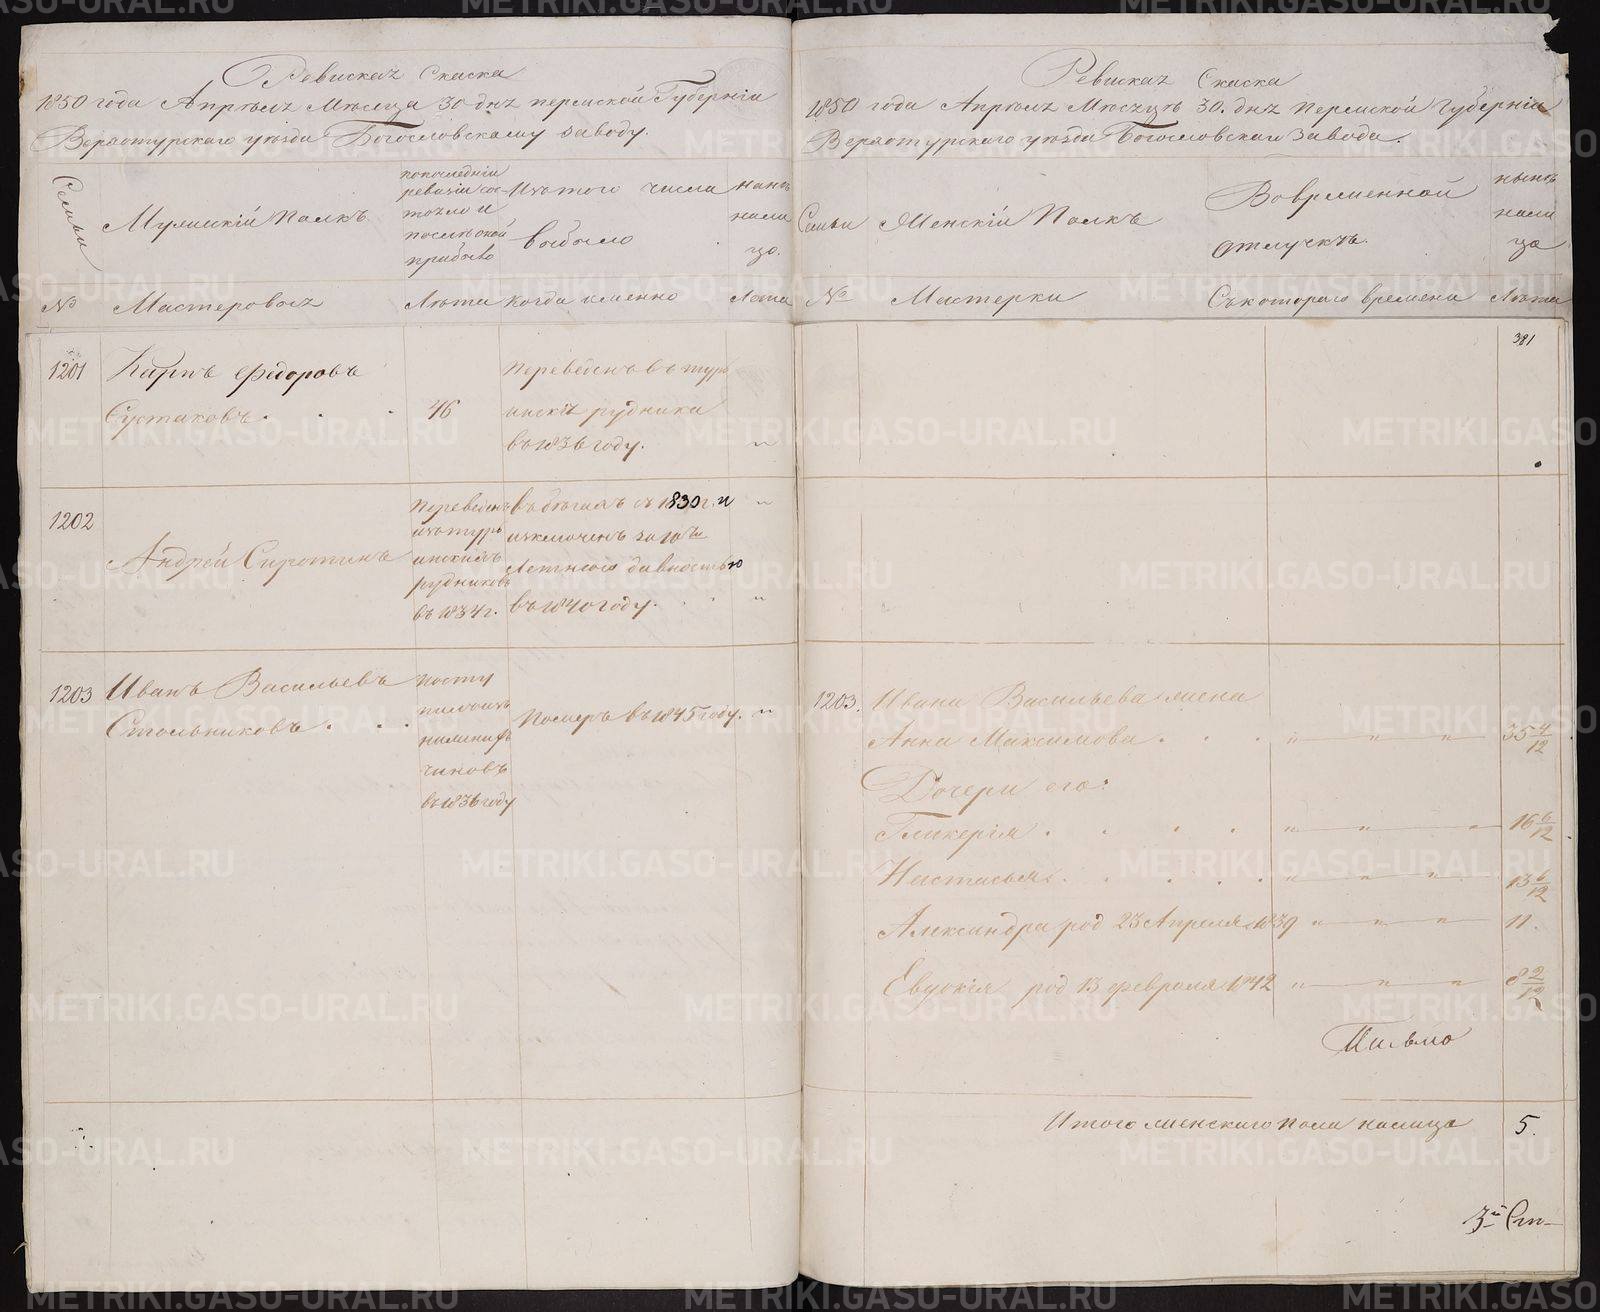 Ревиская Скаска
1850 года Апреля Месяца 30 дня Пермской Губернiи
Верхотурскаго уезда Богословскому заводу.
Семьи
Мужискiй Полкъ
по последнiй
ревизiи сос
тояло и
после оной
прибыло
Изъ того числа
выбыло
на
лица
№
Мастеровыя
Лета
когда именно
Лета
1201
Карпъ Федоровъ
Сустаковъ
46
Переведенъ въ турь
инскiя рудники
въ 1836 году.
"
1202
Андрей Сиротинъ
Переведенъ
изъ турь
инскихъ
рудниковъ
въ 1834 г.
въ бегахъ съ 1830 г. и
изключенъ за 10ти
Летнею давностью
въ 1840 году.
"
"
1203
Иванъ Васильевъ
Стольниковъ
въ 1836 году
Померъ въ 1845 году.
"
Ревиская Скаска
1850 года Апреля Месяцъ 30. дня Пермской Губернiи
Верхотурскаго уезда Богословскаго Завода.
Семьи
Женскiй Полкъ
Во временной
отлучкъ.
ныне
нали
цо
№
Мастерки
Съ котораго времени
Лета
381
1203.
Ивана Васильева жена
Анна Максимова
" " "
35 4/12
Дочери его:
Гликерiя
" " "
16 6/12
Настасья
" " "
13 6/12
Александра род 23 Апреля 1839
" " "
11.
Евдокiя род 13 февраля 1842
" " "
8 2/12
Итого женскаго пола налицо
5.
3я Ст
METRIKI.GASO-URAL.RU